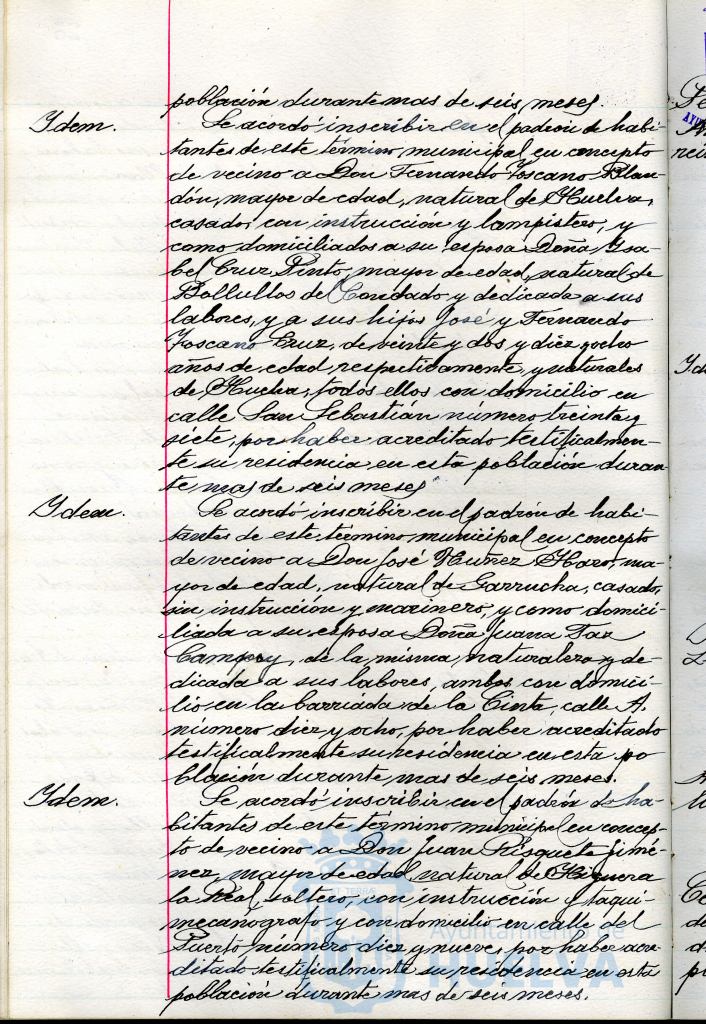 población durante mas de seis meses.
Ydem. Se acordó inscribir en el padrón de habi-
tantes de este término municipal en concepto
de vecino a Don Fernando Toscano Blan-
dón, mayor de edad, natural de Huelva,
casado, con instrucción y lampistero, y
como domiciliados a su esposa Doña Ysa-
bel Cruz Pinto, mayor de edad, natural de
Bollullos del Condado y dedicada a sus
labores, y a sus hijos José y Fernando
Toscano Cruz, de veinte y dos y diez y ocho
años de edad respectivamente, y naturales
de Huelva, todos ellos con domicilio en
calle San Sebastián número treinta y
siete, por haber acreditado testificalmen-
te su residencia en esta población duran
te mas de seis meses
Ydem. Se acordó inscribir en el padrón de habi-
tantes de este término municipal en concepto
de vecino a Don José Nuñez Haro, ma-
yor de edad, natural de Garrucha, casado,
sin instrucción y marinero, y como domici-
liada a su esposa Doña Juana
de la misma naturaleza y de-
dicada a sus labores, ambos con domici-
lio en la barriada de la Cinta, calle A.
número diez y ocho, por haber acreditado
testificalmente su residencia en esta po
blación durante mas de seis meses.
Ydem. Se acordó inscribir en el padrón de ha-
bitantes de este término municipal en concep-
to de vecino a Don Juan Risquete Jimé-
nez, mayor de edad, natural de Higuera
la Real, soltero, con instrucción y taqui-
mecanógrafo y con domicilio en calle del
Puerto número diez y nueve, por haber acre-
ditado testificalmente su residencia en esta
población durante mas de seis meses.
Ayuntamiento de
HUELVA